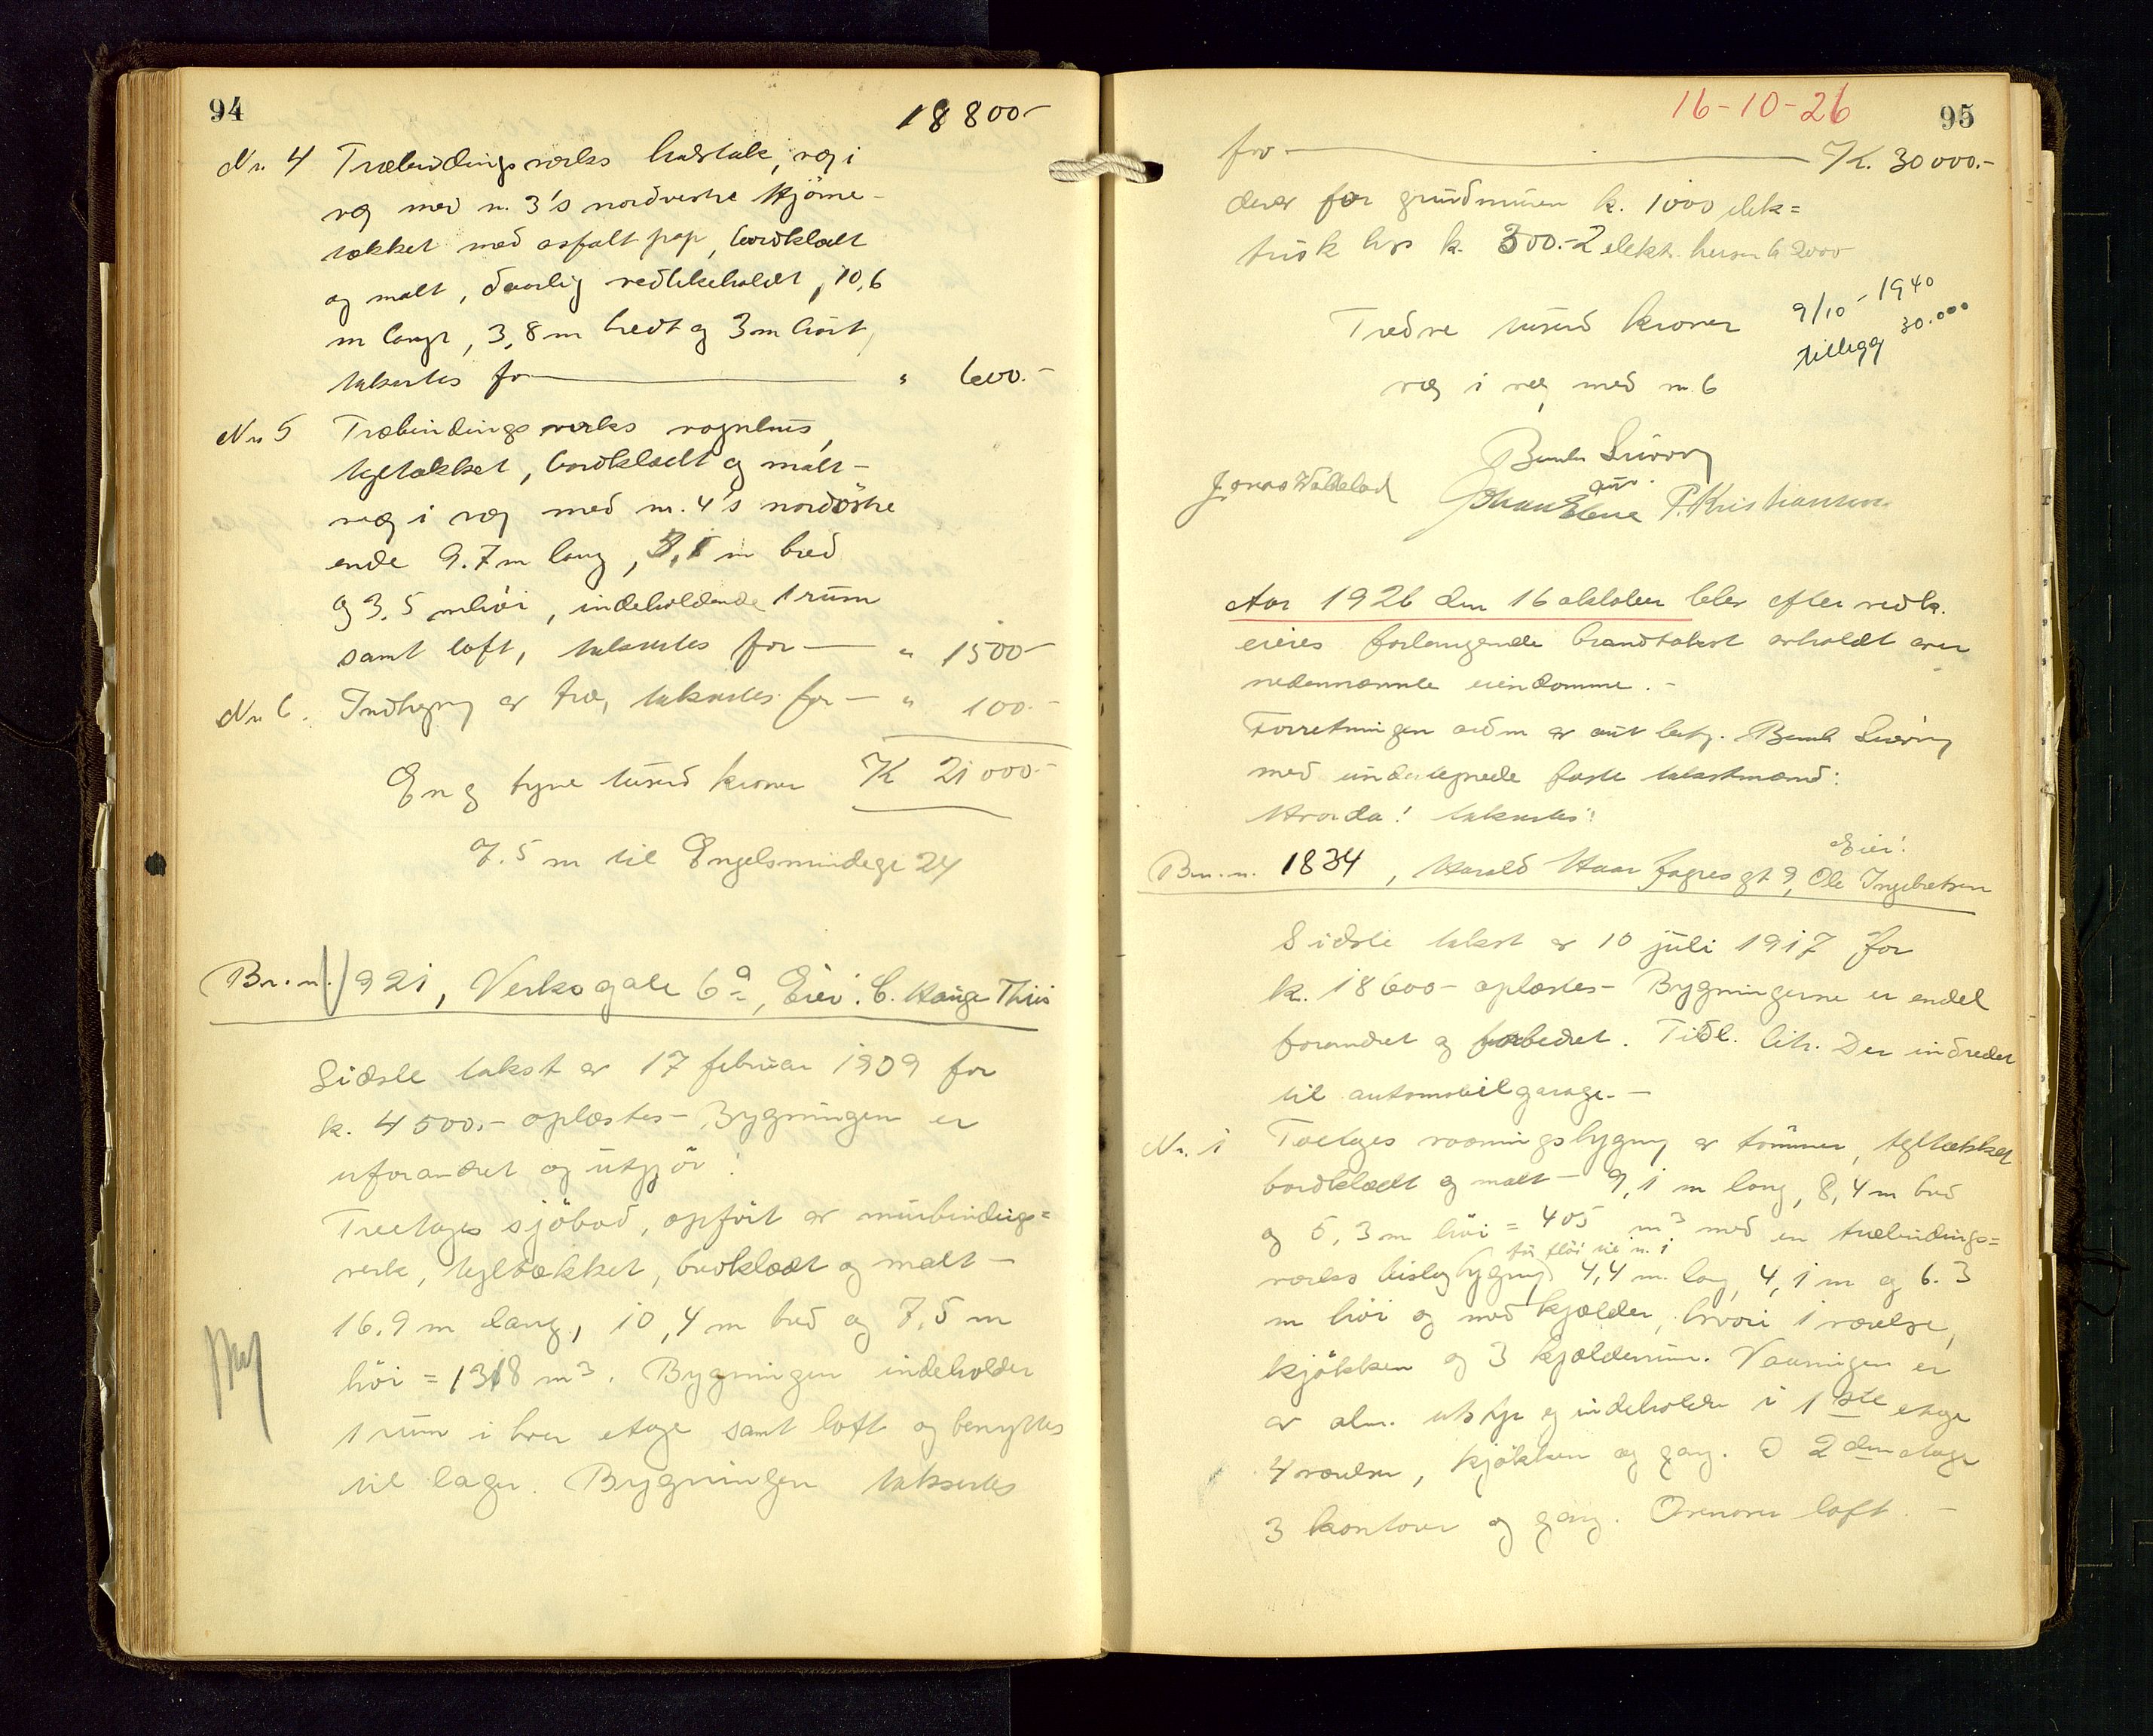 94
18800-
Nr. 4 Træbindingsverks halvtak, væg i
væg med nr. 3's nordvestre hjörne -
tækket med asfaltpap, bordklædt
og malt, daarlig vedlikeholdt, 10,6
m langt, 3,8 m bredt og 3 m höit,
takseres for " 600.-
Nr 5 Træbindingsverks vognhus,
tegltækket, bordklædt og malt -
væg i væg med nr. 4's nordöstre
ende 9.7 m lang, m bred
og 3,5 m höi, indeholdende 1 rum
samt loft, takseres for - " 1500-
Nr 6. Indhegning av træ, takseres for - " 100.-
En og tyve tusind kroner K 21000.-
7.5 m til Engelsmindegt 24
Br.nr. 921, Verksgate 6a, Eier: C. Hauge Thiis
Sidste takst av 17 februar 1909 for
k. 4500.- oplæstes - Bygningen er
uforandret og utgjör:
Treetages sjöbod, opfört av murbindings=
verk, tegltækket, bordklædt og malt -
16.9 m lang, 10,4 m bred og 7,5 m
höi = 1318 m3. Bygningen indeholder
1 rum i hver etage samt loft og benyttes
til lager. Bygningen takseres
16-10-26
95
for - K. 30000.-
derav for grundmuren k. 1000 elek=
trisk lys k. 300.- 2 elektr. heiser k 2000
Tredve tusind kroner
9/10 - 1940
tillegg 30.000
væg i væg med nr 6
Jonas Wallelad
P. Kristiansen
Aar 1926 den 16 oktober blev efter vedk.
eieres forlangende brandtakst avholdt over
nedennævnte eiendomme. -
Forretningen adm av aut best.
med undertegnede faste takstmænd:
Hvorda! takseres:
Eier:
Br.nr. 1834, Harald Haarfagres gt 9, Ole Ingebretsen
Sidste takst av 10 juli 1917 for
k. 18600- oplæstes - Bygningerne er endel
forandret og forbedret. Tidl. litr. D er indredet
til automobilgarage. -
Nr. 1 Toetages vaaningsbygning av tömmer, tegltækket
bordklædt og malt - 9,1 m lang, 8,4 m bred
og 5,3 m höi = 405 m3 med en træbindings=
verks bislagbygning 4,4 m. lang, 4,1 m og 6.3
för flöi til nr. 1
m höi og med kjælder, hvori 1 værelse,
kjökken og 3 kjælderrum. Vaaningen er
av alm. utstyr og indeholder i 1ste etage
4 værelser, kjökken og gang. I 2den etage
3 kontorer og gang. Ovenover loft. -